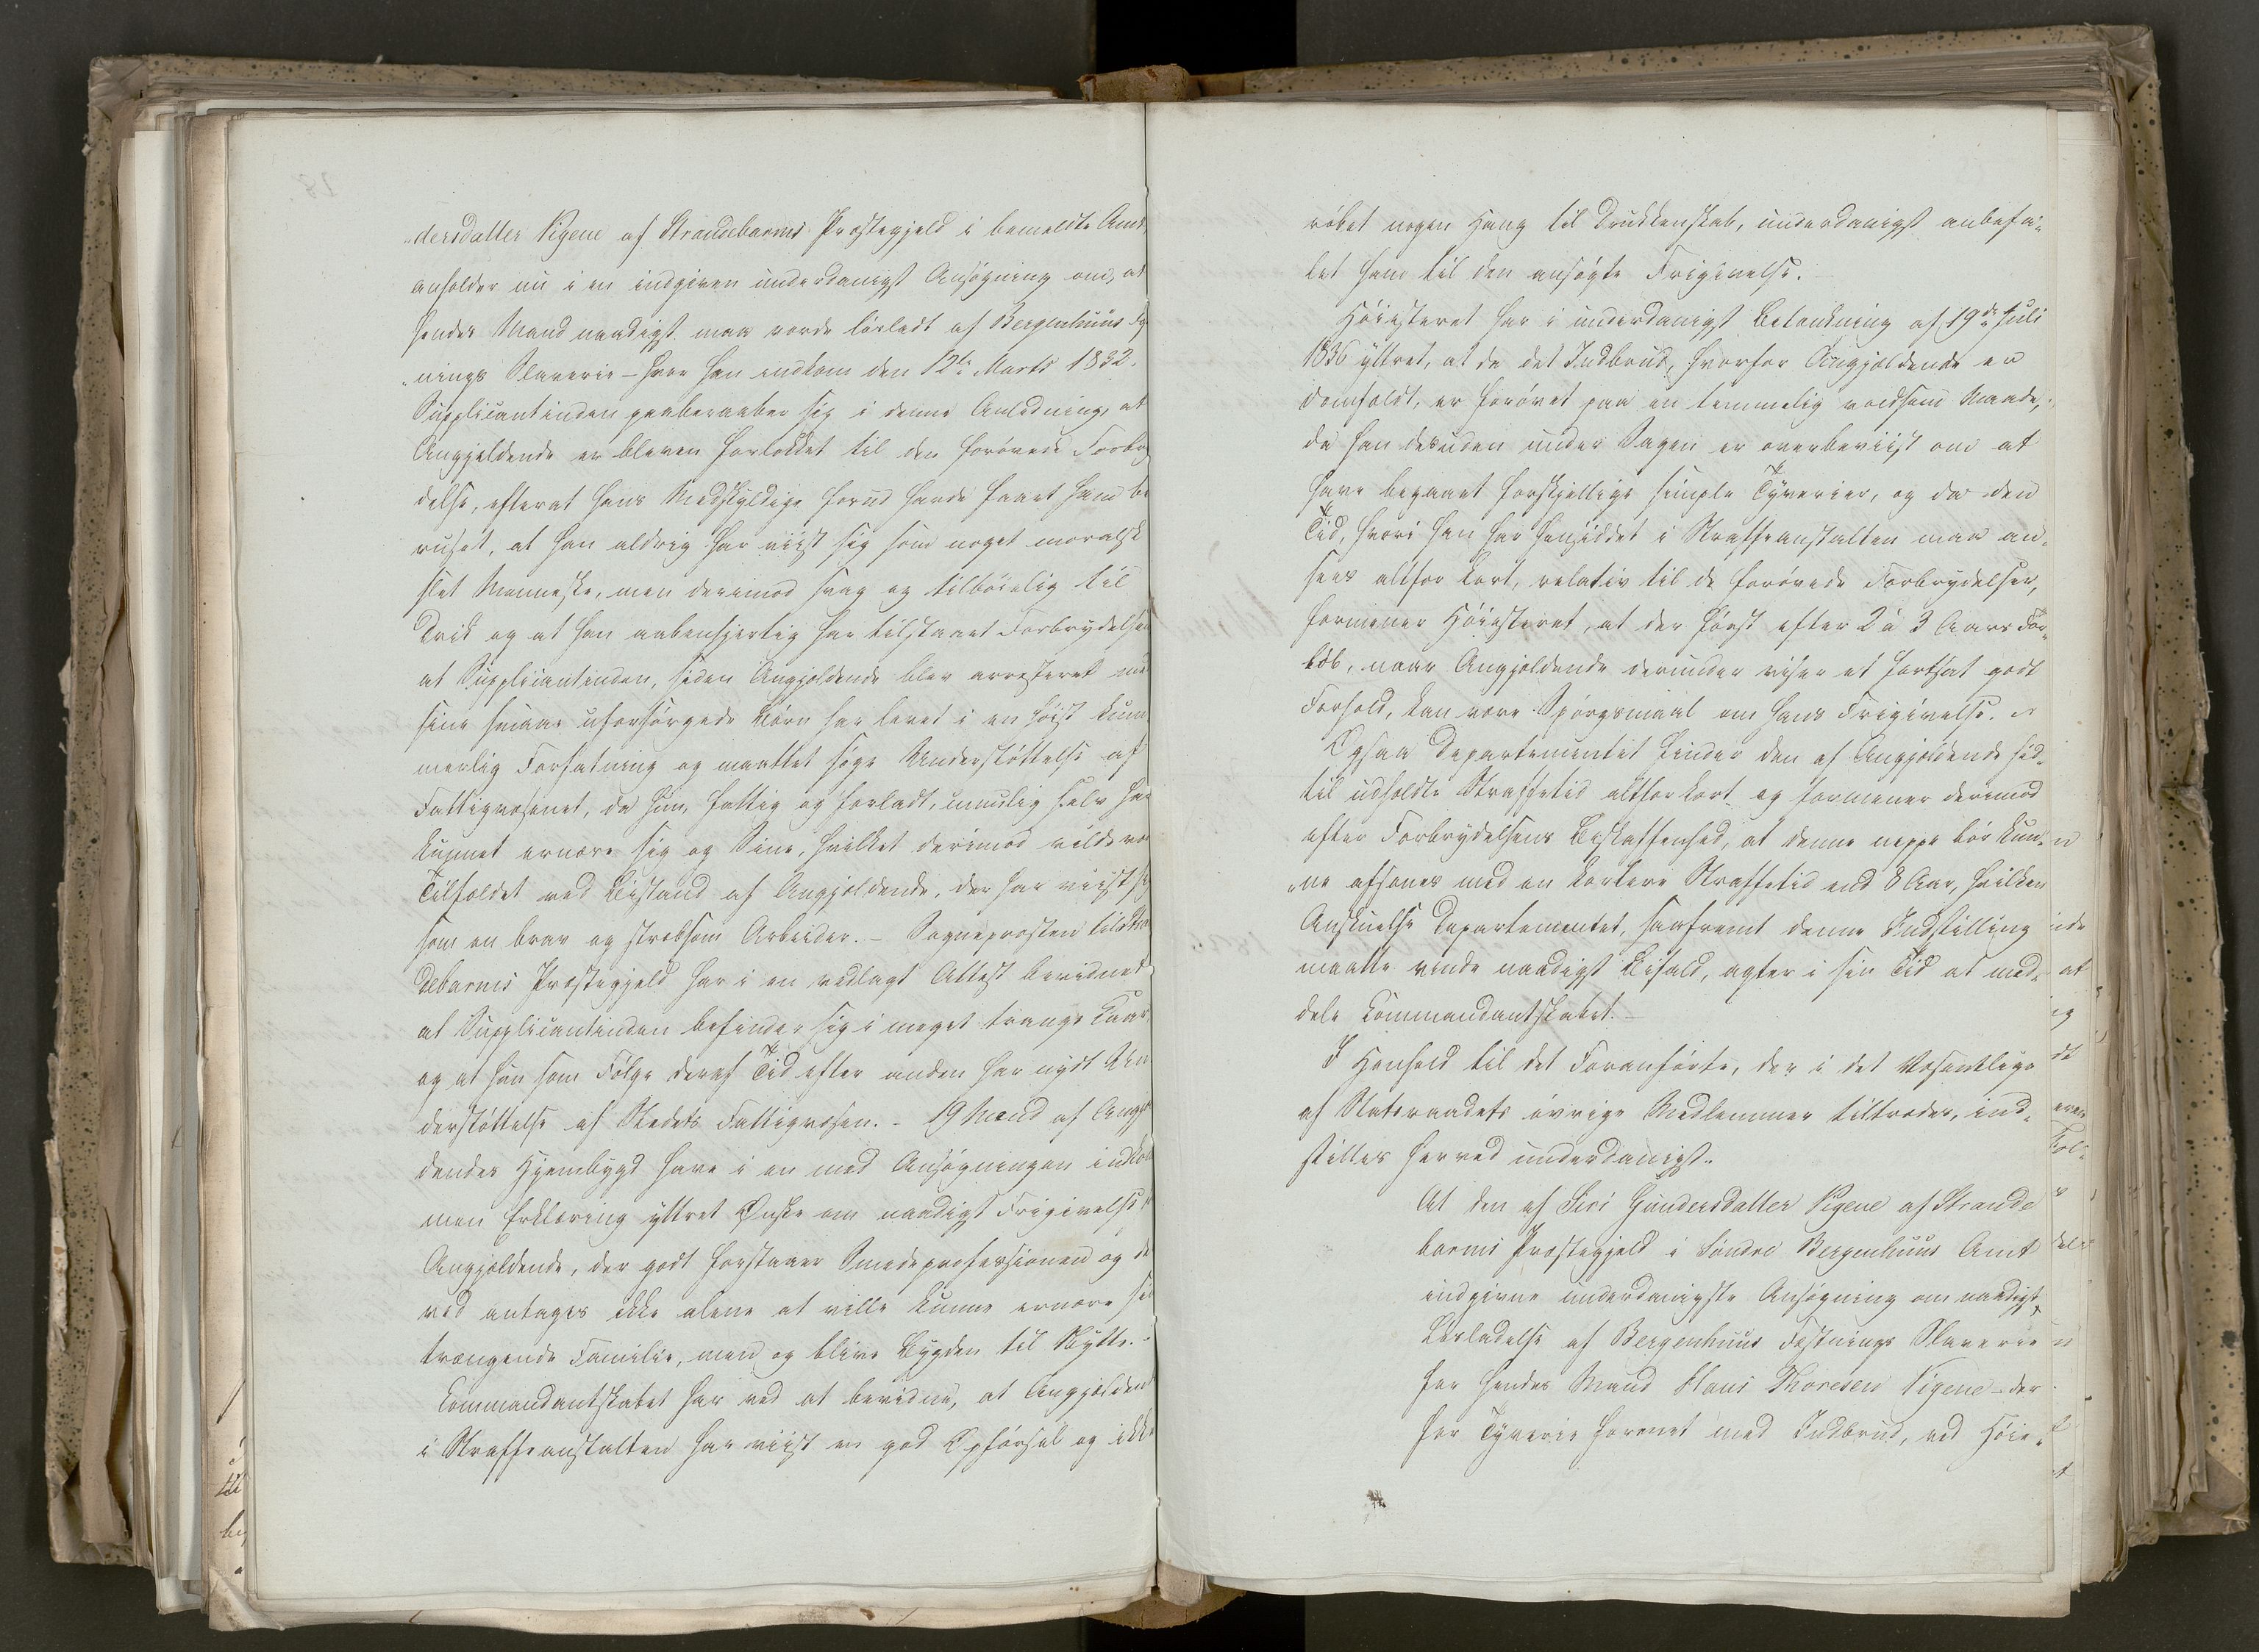 "dersdatter Vigene af Strandebarms Præstegjeld i bemeldte Amt,
anholder nu i en indgiven underdanigst Ansøgning om, at
hendes Mand naadigst maa vorde løsladt af Bergenhuus Fæst
"nings Slaverie – hvor han indkom den 12te Marts 1832.
Supplicantinden paaberaaber sig i denne Anledning, at
Angjeldende er bleven forlokket til den forøvede Forbry
delse, efterat hans Medskyldige forud havde faaet ham be
ruset, at han aldrig har viist sig som noget moralsk
slet Menneske, men derimod svag og tilbøielig til
Drik og at han aabenhjertig har tilstaaet Forbrydelsen
at Supplicantinden, siden Angjeldende blev arresteret med
sine smaae uforsørgede Børn har levet i en høist kum
merlig Forfatning og maattet søge Understøttelse af
Fattigvæsenet, da hun, fattig og forladt, umulig selv har
kunnet ernære sig og Sine, hvilket derimod vilde vær
Tilfældet ved Bistand af Angjeldende, der har viist sig
som en brav og stræbsom Arbeider. – Sognepræsten til Stran
debarms Præstegjeld har i en vedlagt Attest bevidnet
at Supplicantinden befinder sig i meget trange Kaar,
og at hun som Følge deraf Tid efter anden har nydt Un
derstøttelse af Stedets Fattigvæsen. – 19 Mænd af Angjel
dendes Hjembygd have i en med Ansøgningen indkom
men Erklæring yttret Ønske om naadigst Frigivelse f
Angjeldende, der godt forstaaer Smedeprofessionen og de
ved antages ikke alene at ville kunne ernære sin
trængende Familie, men og blive Bygden til Nytte. –
Commandantskabet har ved at bevidne, at Angjeldende
i Straffeanstalten har viist en god Opførsel og ikke
røbet nogen Hang til Drukkenskab, underdanigst anbefa¬
let ham til den ansøgte Frigivelse.
Høiesteret har i underdanigst Betænkning af 19de Juli
1836 yttret, at da det Indbrud, hvorfor Angjeldende er
domfældt, er forøvet paa en temmelig voldsom Maade,
da han desuden under Sagen er overbeviist om at
have begaaet forskjellige simple Tyverier, og da den
Tid, hvori han har hensiddet i Straffeanstalten maa an¬
sees altfor kort, relativ til de forøvede Forbrydelser,
formener Høiesteret, at der først efter 2 à 3 Aars For¬
løb, naar Angjeldende derunder viser et fortsat godt
Forhold, kan være Spørgsmaal om hans Frigivelse.
Ogsaa Departementet finder den af Angjeldende hid¬
til udholdte Straffetid altfor kort og formener derimod
efter Forbrydelsens Beskaffenhed, at denne neppe bør kun¬
"ne afsones med en kortere Straffetid end 8 Aar, hvilken
Anskuelse Departementet, saafremt denne Indstilling
maatte vinde naadigst Bifald, agter i sin Tid at med¬
dele Commandantskabet. –
I Henhold til det Foranførte, der i det Væsentlige
af Statsraadets øvrige Medlemmer tiltrædes, ind¬
stilles herved underdanigst:
At den af Siri Gundersdatter Vigene af Strande
barms Præstegjeld i Søndre Bergenhuus Amt
indgivne underdanigste Ansøgning om naadigst
Løsladelse af Bergenhuus Fæstnings Slaverie
for hendes Mand Hans Thoresen Vigene – der
for Tyverie forenet med Indbrud, ved Høie¬